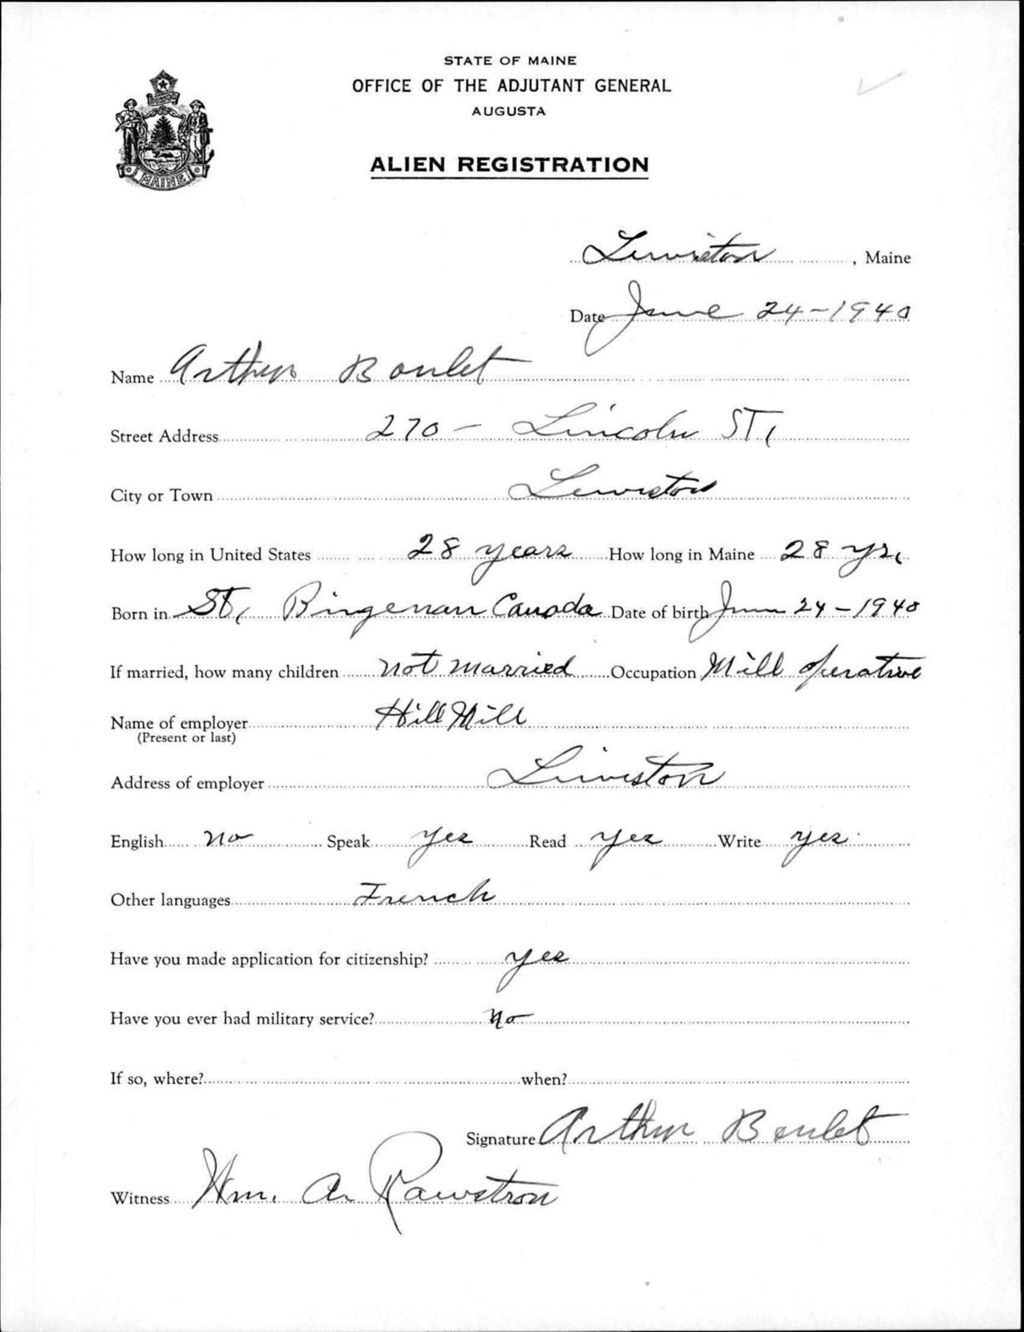 STATE OF MAINE
OFFICE OF THE ADJUTANT GENERAL
AUGUSTA
ALIEN REGISTRATION
MAINE
Lewiston, Maine
Date June 24-1940
Name Arthur Boulet
Street Address 270 - Lincoln ST.
City or Town Lewiston
How long in United States 28 years How long in Maine 28 yr.
Born in St. Canada Date of birth June 24-1940
If married, how many children not married Occupation Mill operative
Name of employer Hill Mill
(Present or last)
Address of employer Lewiston
English no Speak yes Read yes Write yes
Other languages French
Have you made application for citizenship? yes
Have you ever had military service? no
If so, where? when?
Signature Arthur Boulet
Witness Wm. A. Rawstron